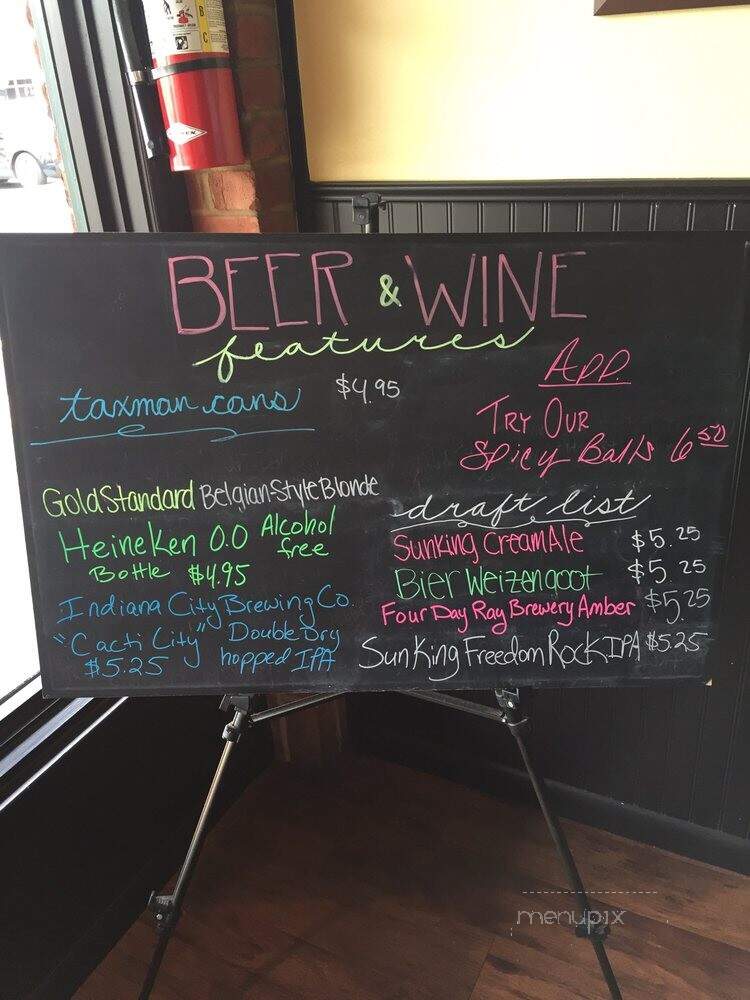 BEER & WINE
features
taxman cans $4.95
Gold Standard Belgian-Style Blonde
Heineken 0.0 Alcohol free
Bottle $4.95
Indiana City Brewing Co.
"Cacti City" Double Dry
$5.25 hopped IPA
App.
Try Our
Spicy Balls 6 50
draft list
Sunking Cream Ale $5.25
Bier Weizengoot $5.25
Four Day Ray Brewery Amber $5.25
Sun King Freedom Rock IPA $5.25
B
C
menupix